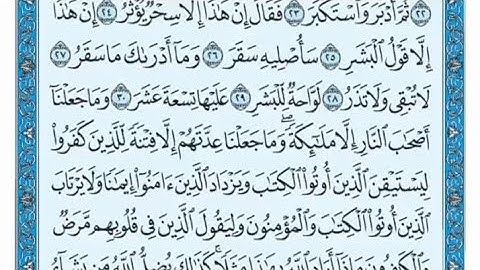 ٢٢ ثُمَّ أَدْبَرَ وَاسْتَكْبَرَ ٢٣ فَقَالَ إِنْ هَٰذَا إِلَّا سِحْرٌ يُؤْثَرُ ٢٤ إِنْ هَٰذَا
إِلَّا قَوْلُ الْبَشَرِ ٢٥ سَأُصْلِيهِ سَقَرَ ٢٦ وَمَا أَدْرَىٰكَ مَا سَقَرُ ٢٧
لَا تُبْقِي وَلَا تَذَرُ ٢٨ لَوَّاحَةٌ لِّلْبَشَرِ ٢٩ عَلَيْهَا تِسْعَةَ عَشَرَ ٣٠ وَمَا جَعَلْنَا
أَصْحَٰبَ النَّارِ إِلَّا مَلَٰٓئِكَةً ۙ وَمَا جَعَلْنَا عِدَّتَهُمْ إِلَّا فِتْنَةً لِّلَّذِينَ كَفَرُوا
لِيَسْتَيْقِنَ الَّذِينَ أُوتُوا الْكِتَٰبَ وَيَزْدَادَ الَّذِينَ ءَامَنُوا إِيمَٰنًا وَلَا يَرْتَابَ
الَّذِينَ أُوتُوا الْكِتَٰبَ وَالْمُؤْمِنُونَ وَلِيَقُولَ الَّذِينَ فِي قُلُوبِهِم مَّرَضٌ
وَالْكَٰفِرُونَ مَاذَا أَرَادَ اللَّهُ بِهَٰذَا مَثَلًا ۚ كَذَٰلِكَ يُضِلُّ اللَّهُ مَن يَشَاءُ